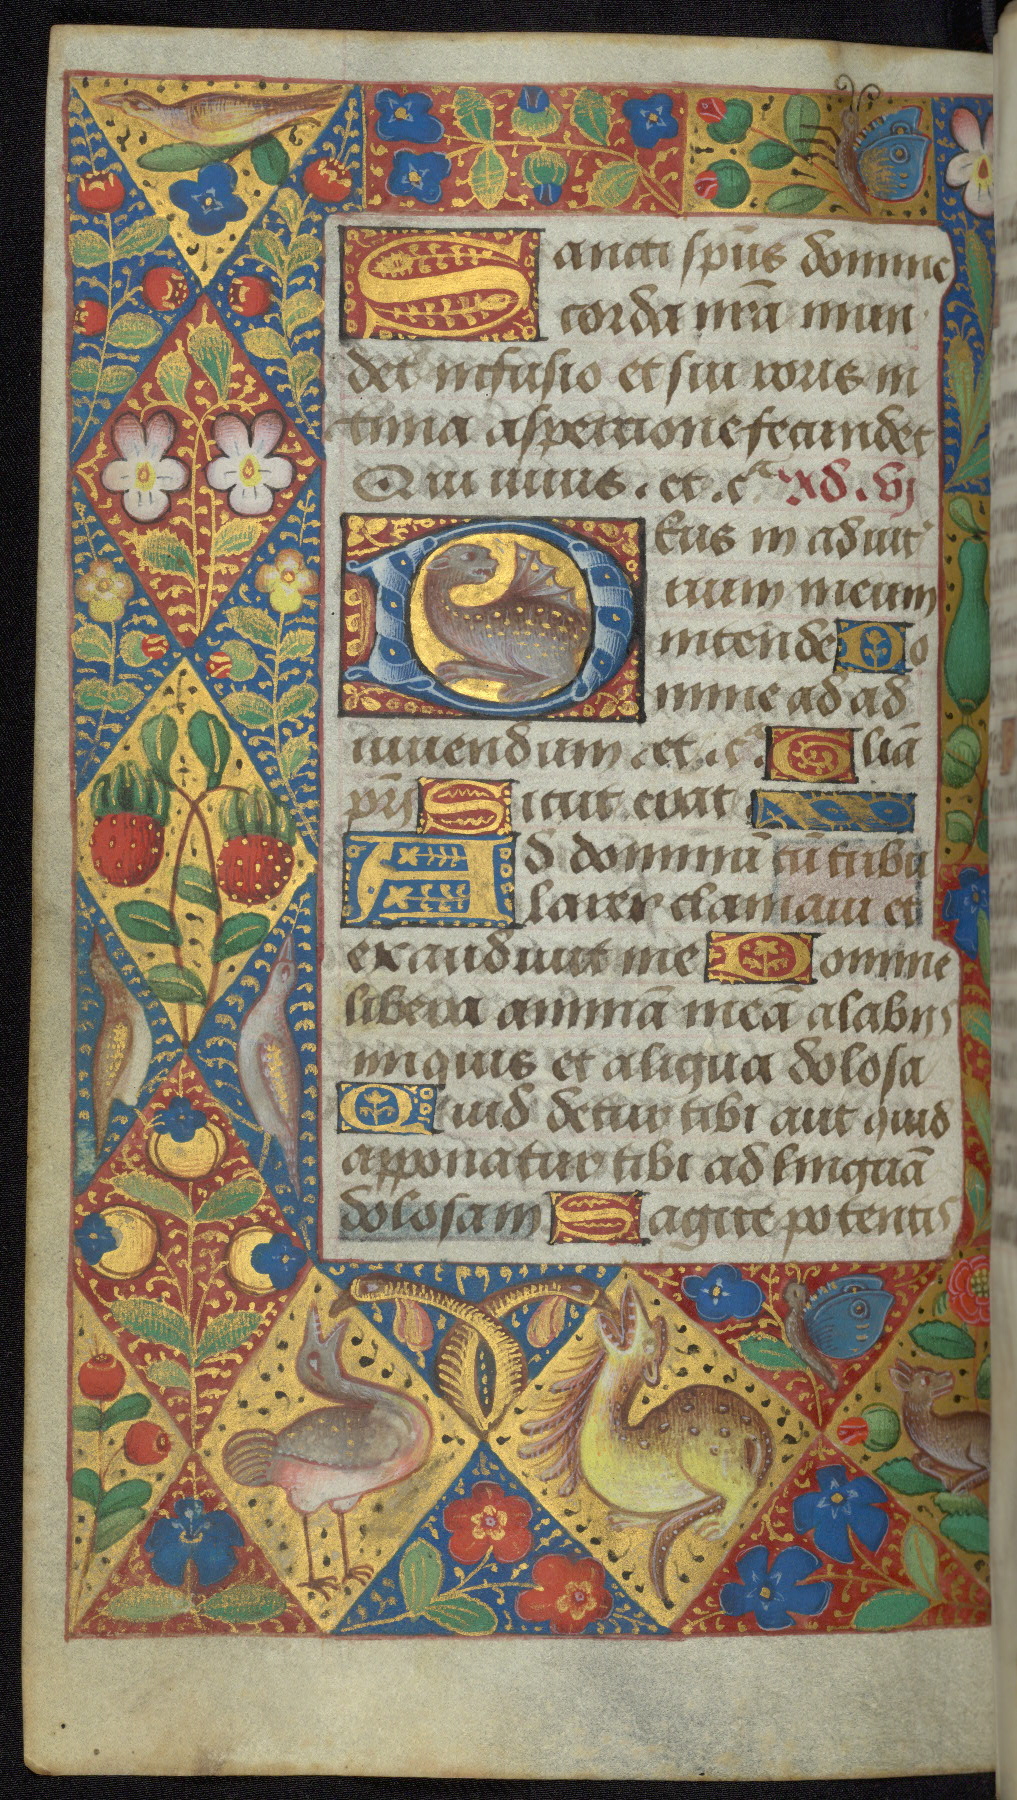 Sancti spūs domine
corda nrā mun
det infusio et sui roris in
tima aspercione fecundet
Qui uiuis . et .cᵃ Ad .vj
Deus in adiut
rium meum
intende Do
mine ad ad
iuuendum .et .cᵃ. Gliā
pr̄i Sicut erat
Ad dominū cū tribu
larer clamaui et
exaudiuit me Domine
libera animā meā a labiis
iniquis et a ligua dolosa
Quid detur tibi aut quid
apponatur tibi ad linguā
dolosam Sagite potentis